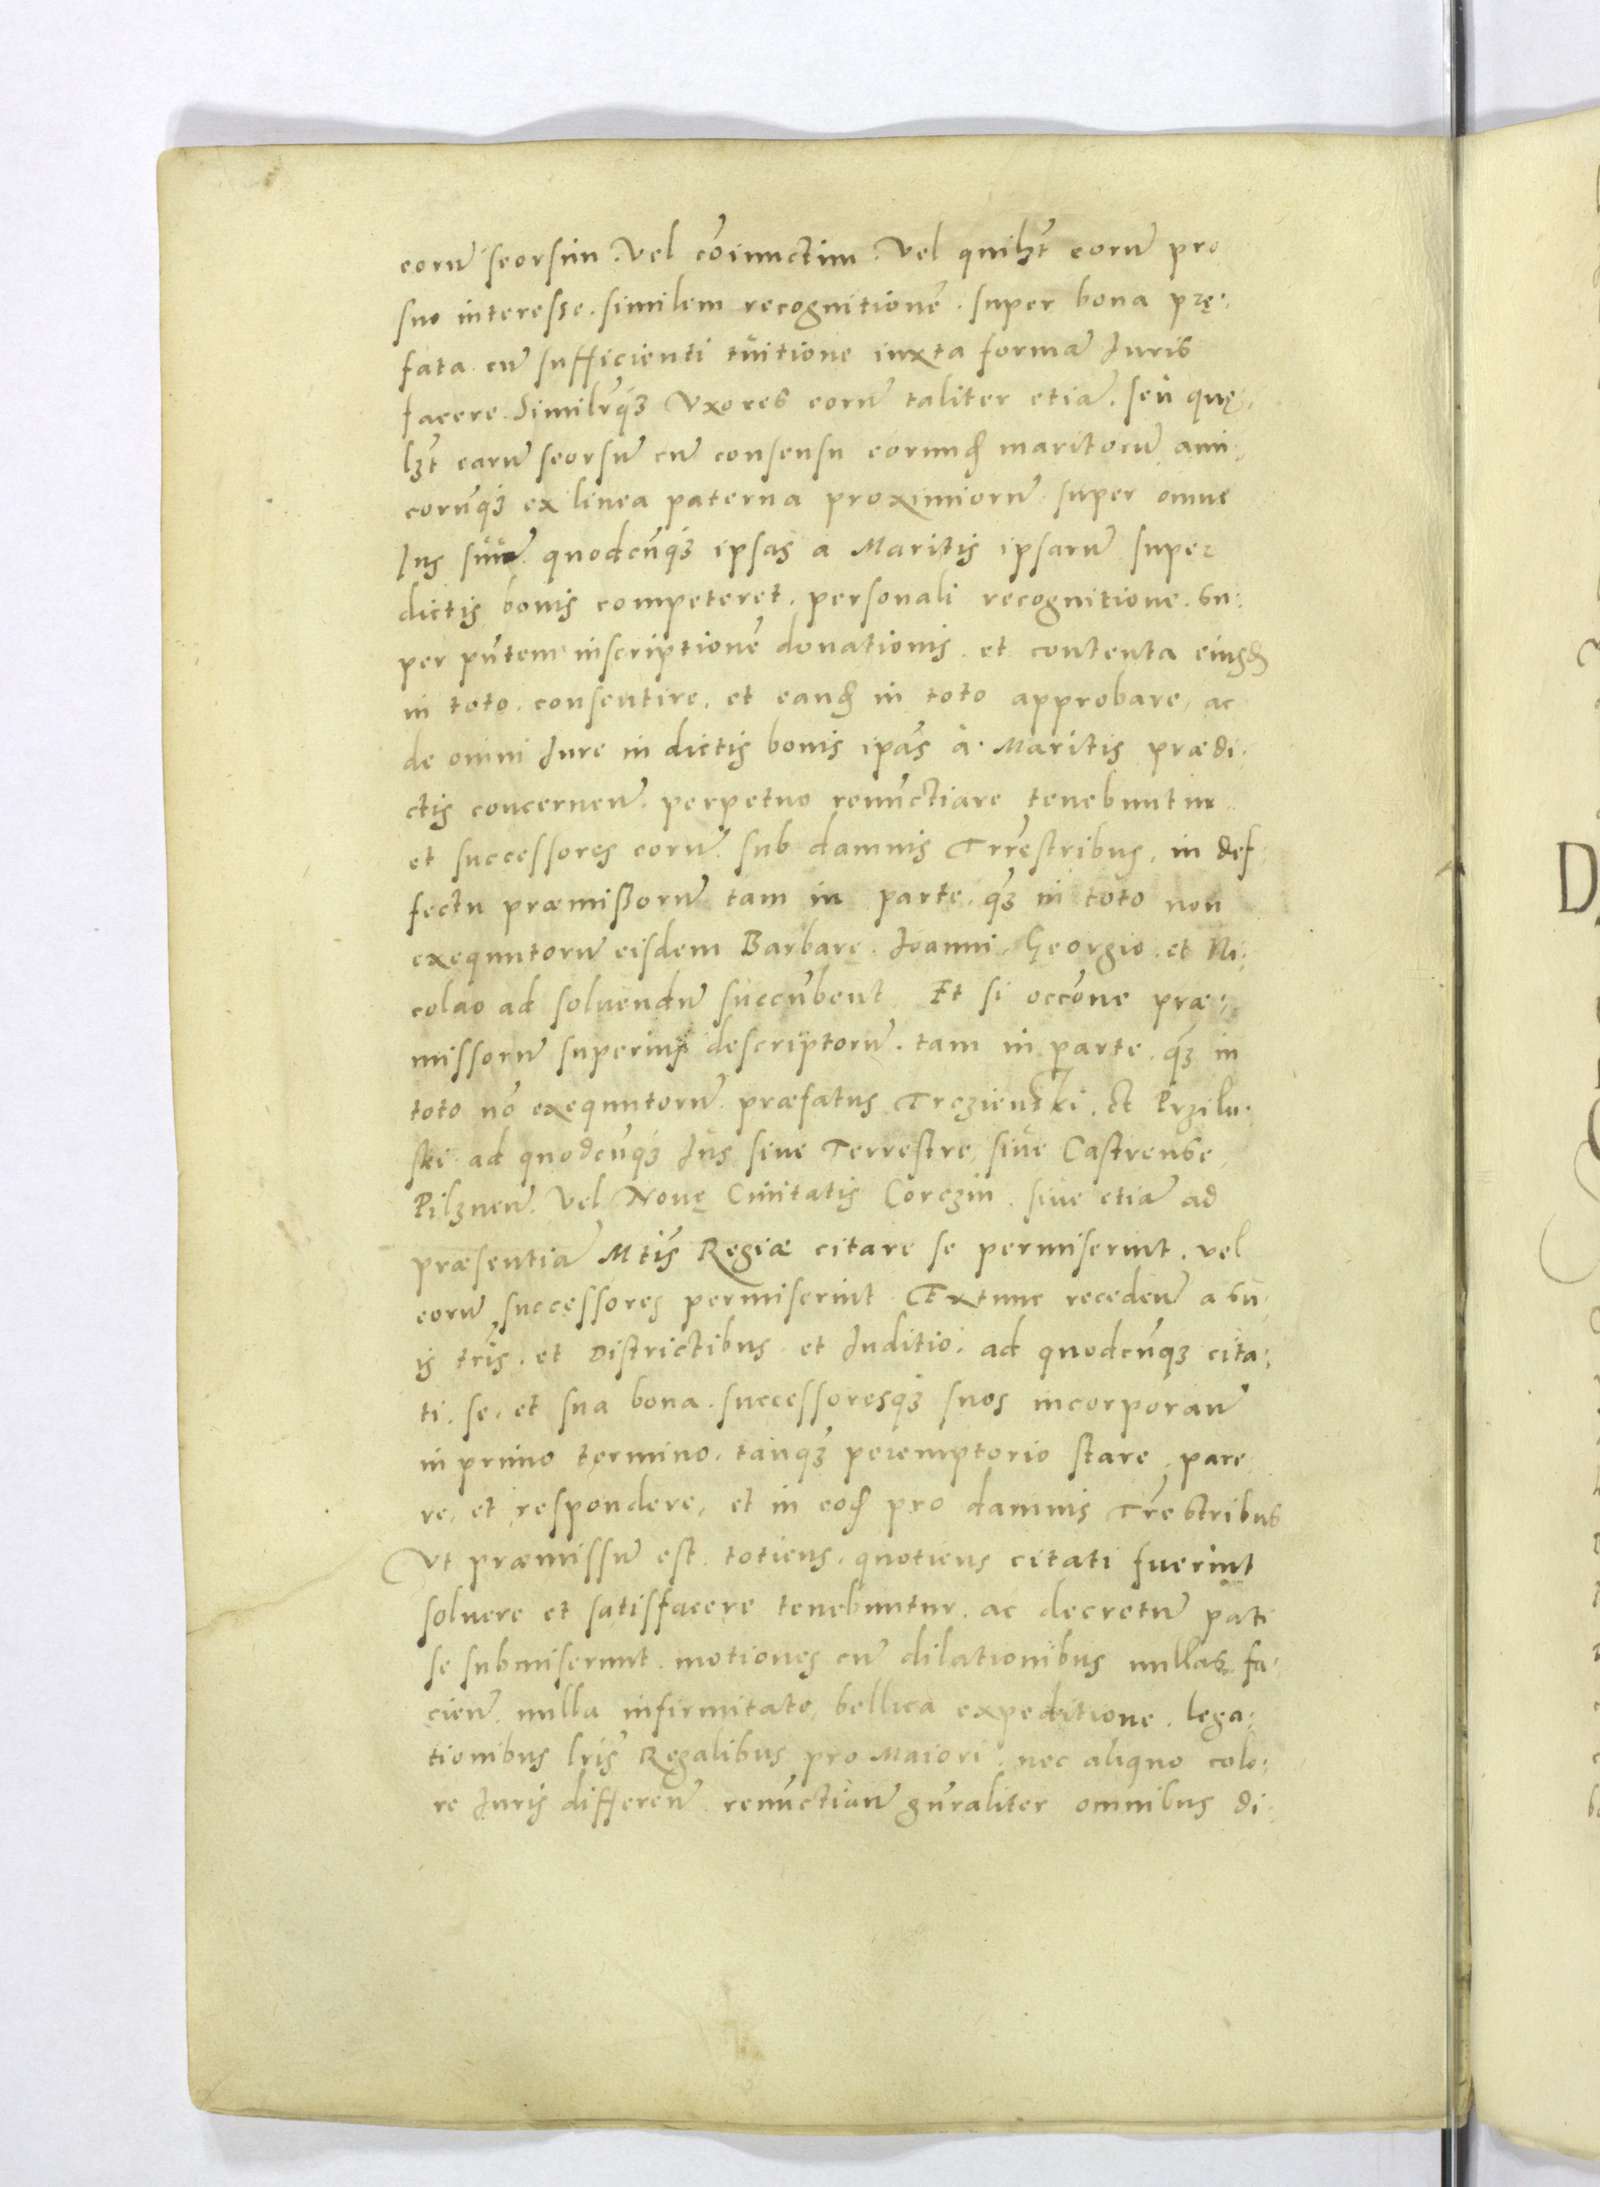 eorū seorsim. Vel cōiunctim. Vel quilȝt eorū pro
suo interesse. similem recognitionē. super bona prę:
fata. cū sufficienti tuitione iuxta formā Iuris
facere. Similrq́ȝ Vxores eorū taliter etiā. seu quę:
lȝt earū seorsū cū consensu eorund̄ maritorū ami:
corūq́ȝ ex linea paterna proximiorū super omne
Ius suū quodcūq́ȝ ipsas a Maritis ipsarū super
dictis bonis competeret. personali recognitione. su:
per pn̄tem inscriptionē donationis. et contenta eiusd̄
in toto. consentire. et eand̄ in toto approbare, ac
de omni Iure in dictis bonis ipās à Maritis prædi:
ctis concernen̄. perpetuo renūctiare tenebuntur
et successores eorū. sub damnis Trr̄estribus. in def
fectu præmißorū tam in parte. q́ȝ in toto non
exequutorū eisdem Barbarę. Ioanni. Georgio. et Ni:
colao ad soluendū succūbent Et si occōne præ:
missorū superius descriptorū. tam in parte. q́ȝ in
toto nō exequutorū. præfatus Trzienski. et Przilu:
ski. ad quodcūq́ȝ Ius siue Terrestre, siue Castrense,
Pilznen̄. Vel Nouę Ciuitatis Corczin. siue etiā ad
præsentiā Mtis̄ Regiæ citare se permiserint. vel
eorū successores permiserint. Extunc receden̄ a su:
is trīs. et Districtibus. et Iuditio. ad quodcūq́ȝ cita:
ti. se. et sua bona. successoresq́ȝ suos incorporan̄
in primo termino. tanq́ȝ peremptorio stare. pare
re, et respondere, et in eod̄ pro damnis Trr̄estribus
Vt præmissū est. totiens. quotiens citati fuerint
soluere et satisfacere tenebuntur. ac decretū pati
se submiserunt. motiones cū dilationibus nullas fa:
cien̄. nulla infirmitate, bellica expeditione. lega:
tionibus lrīs Regalibus pro Maiori. nec aliquo colo:
re Iuris differen̄. renūctian̄ gn̄raliter omnibus di: